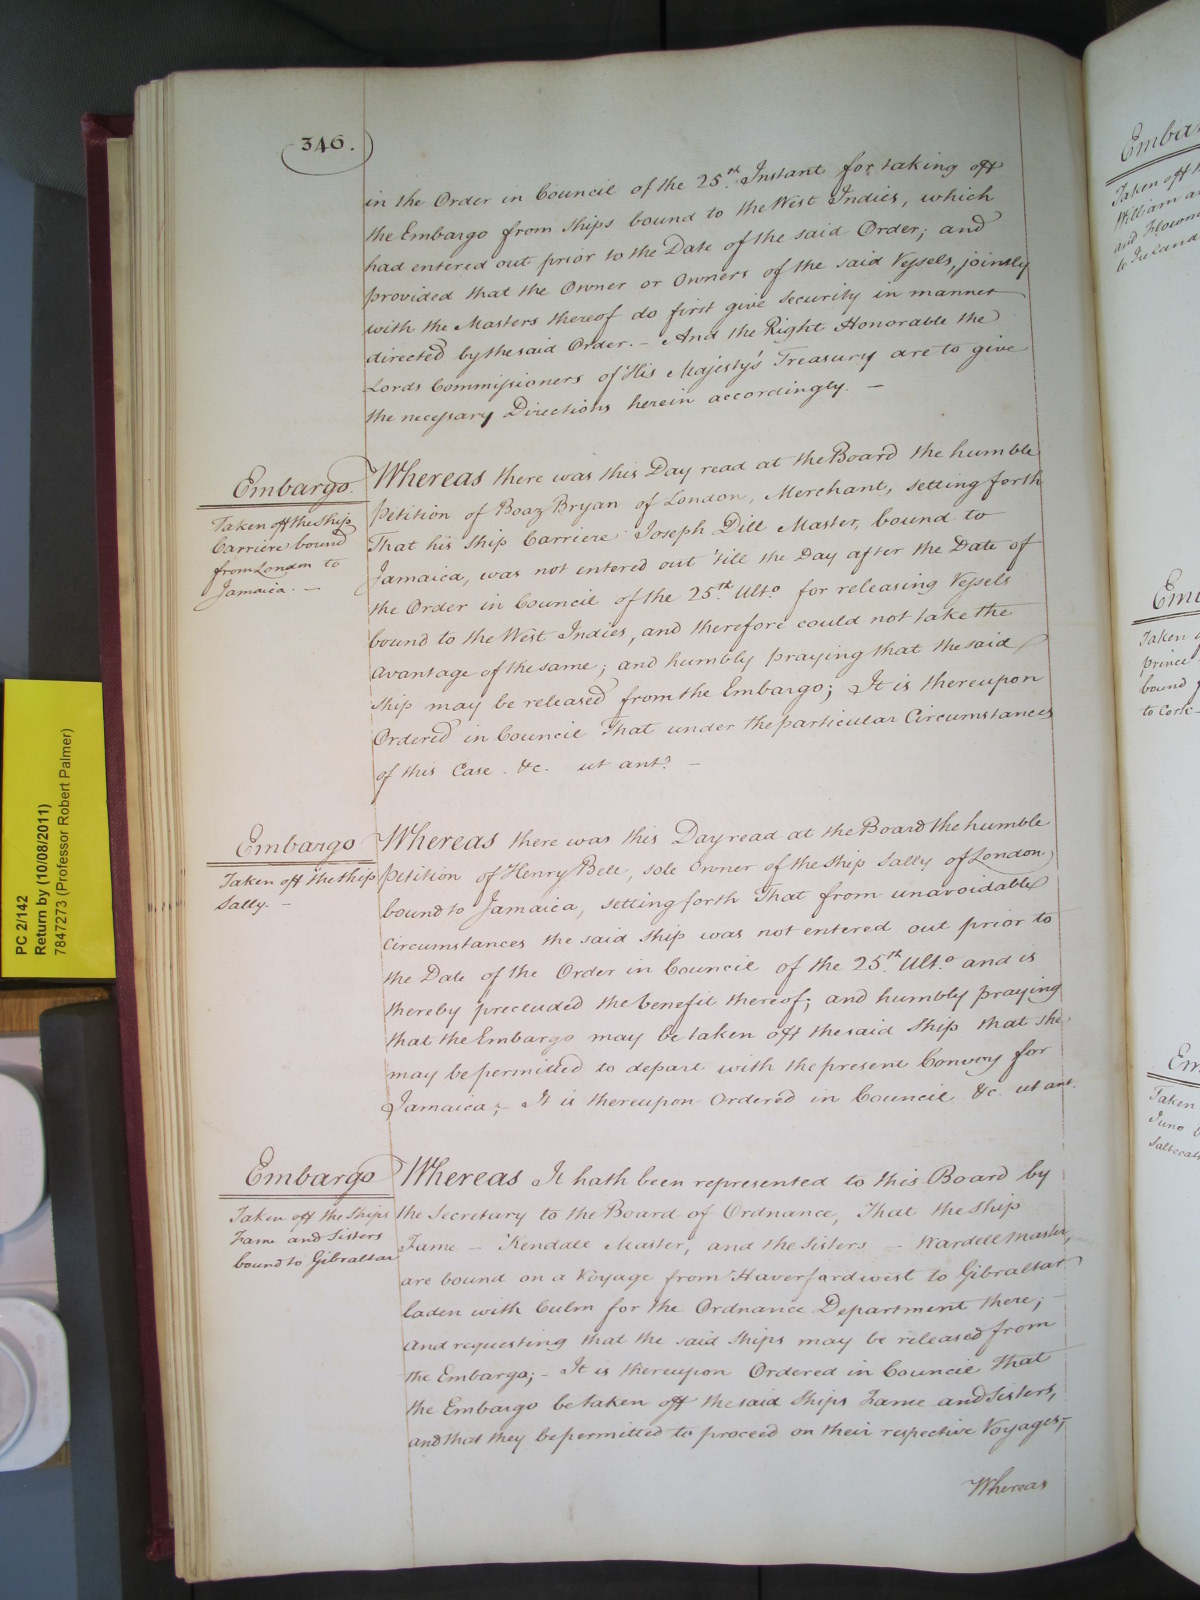 346.
in the Order in Council of the 25.th Instant for taking off
the Embargo from Ships bound to the West Indies, which
had entered out prior to the Date of the said Order; and
provided that the Owner or Owners of the said Vessels, jointly
with the Masters thereof do first give Security in manner
directed by the said Order. - And the Right Honorable the
Lords Commissioners of His Majesty's Treasury are to give
the necessary Directions herein accordingly. -
Embargo.
Taken off the Ship
Carriere bound
from London to
Jamaica. -
Whereas there was this Day read at the Board the humble
Petition of Boaz Bryan of London, Merchant, setting forth
That his Ship Carriere Joseph Dill Master, bound to
Jamaica, was not entered out 'till the Day after the Date of
the Order in Council of the 25.th Ult.o for releasing Vessels
bound to the West Indies, and therefore could not take the
avantage of the same; and humbly praying that the said
Ship may be released from the Embargo; It is thereupon
Ordered in Council That under the particular Circumstances
of this Case. &c. ut ant.e -
Embargo
Taken off the Ship
Sally. -
Whereas there was this Day read at the Board the humble
Petition of Henry Bell, sole Owner of the Ship Sally of London,
bound to Jamaica, setting forth That from unavoidable
Circumstances the said Ship was not entered out prior to
the Date of the Order in Council of the 25.th Ult.o and is
thereby precluded the benefit thereof; and humbly praying
that the Embargo may be taken off the said Ship that she
may be permitted to depart with the present Convoy for
Jamaica; - It is thereupon Ordered in Council &c. ut ant.
Embargo
Taken off the Ships
Fame and Sisters
bound to Gibraltar
Whereas It hath been represented to this Board by
the Secretary to the Board of Ordnance, That the Ship
Fame - Kendall Master, and the Sisters - Wardell Master,
are bound on a Voyage from Haverfordwest to Gibraltar
laden with Culm for the Ordnance Department there;
and requesting that the said Ships may be released from
the Embargo; - It is thereupon Ordered in Council That
the Embargo be taken off the said Ships Fame and Sisters,
and that they be permitted to proceed on their respective Voyages, -
Whereas
PC 2/142
Return by (10/08/2011)
7847273 (Professor Robert Palmer)
Taken off
William
and
to Ireland
Taken
Prince
bound
to Cork -
Taken
Juno
Saltcoats